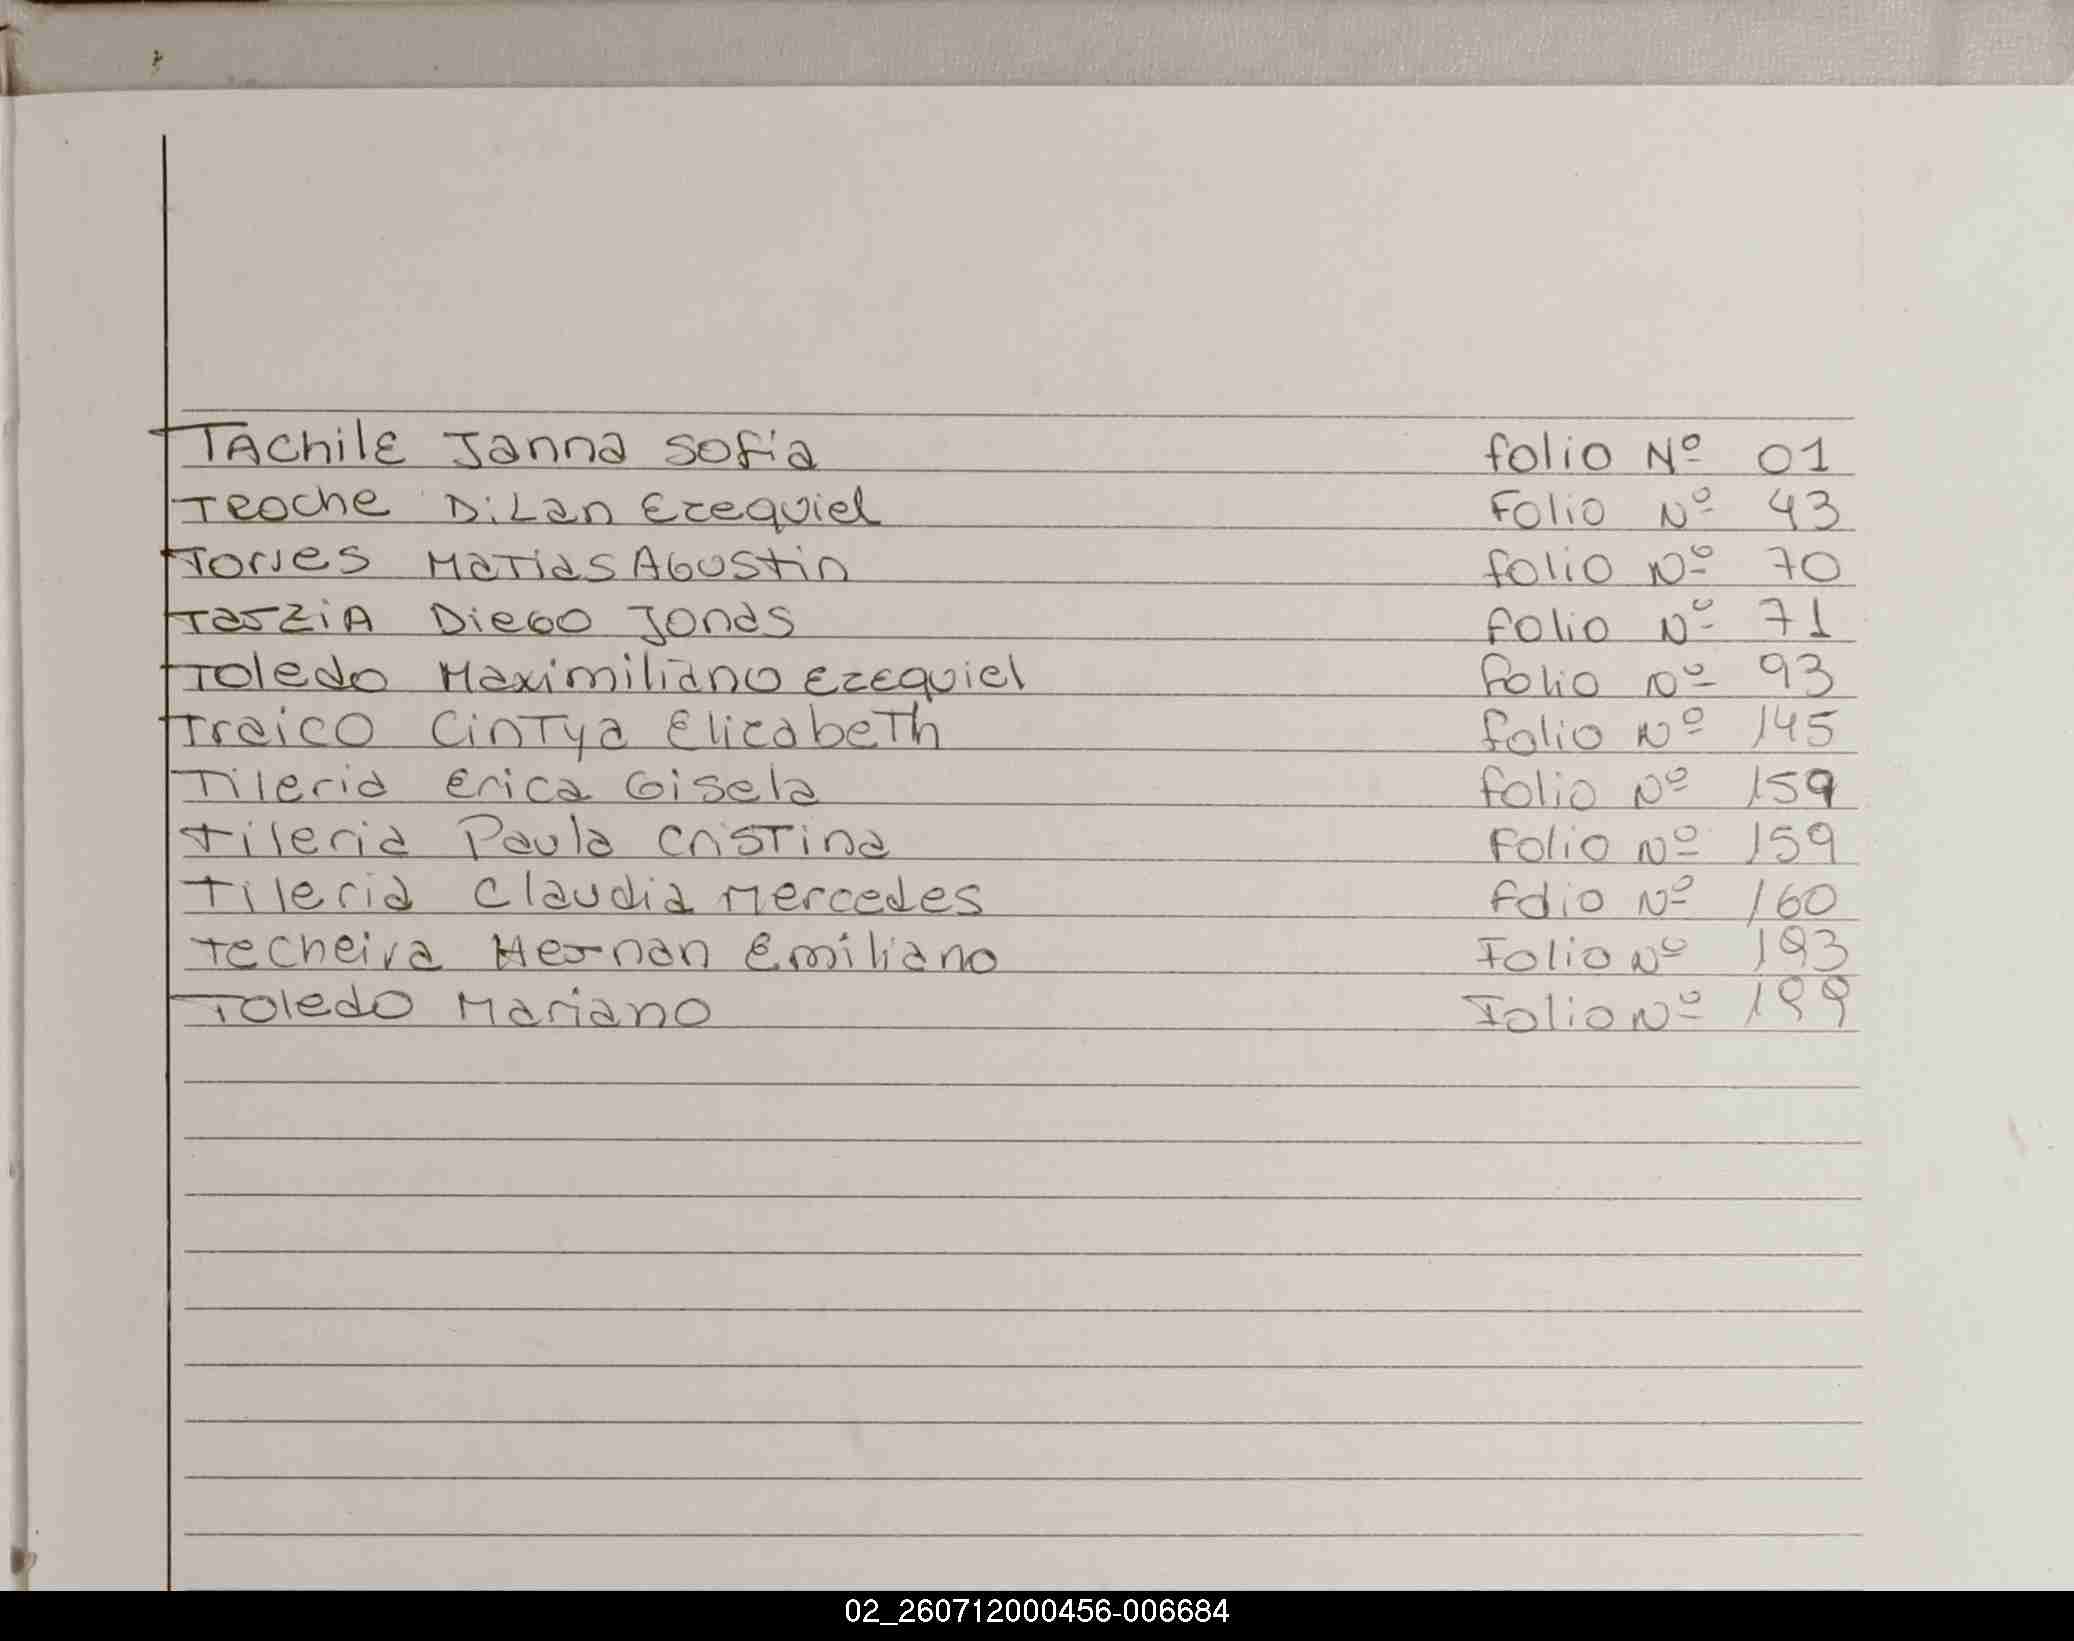 TAchile Janna Sofia folio Nº 01
Troche Dilan Ezequiel Folio Nº 43
Torres Matias Agustin folio Nº 70
Tarzia Diego Jonas folio Nº 71
Toledo Maximiliano Ezequiel folio Nº 93
Traico Cintya Elizabeth folio Nº 145
Tileria Erica Gisela folio Nº 159
Tileria Paula Cristina Folio Nº 159
Tileria Claudia Mercedes folio Nº 160
Techeira Hernan Emiliano Folio Nº 193
Toledo Mariano Folio Nº 199
02_260712000456-006684